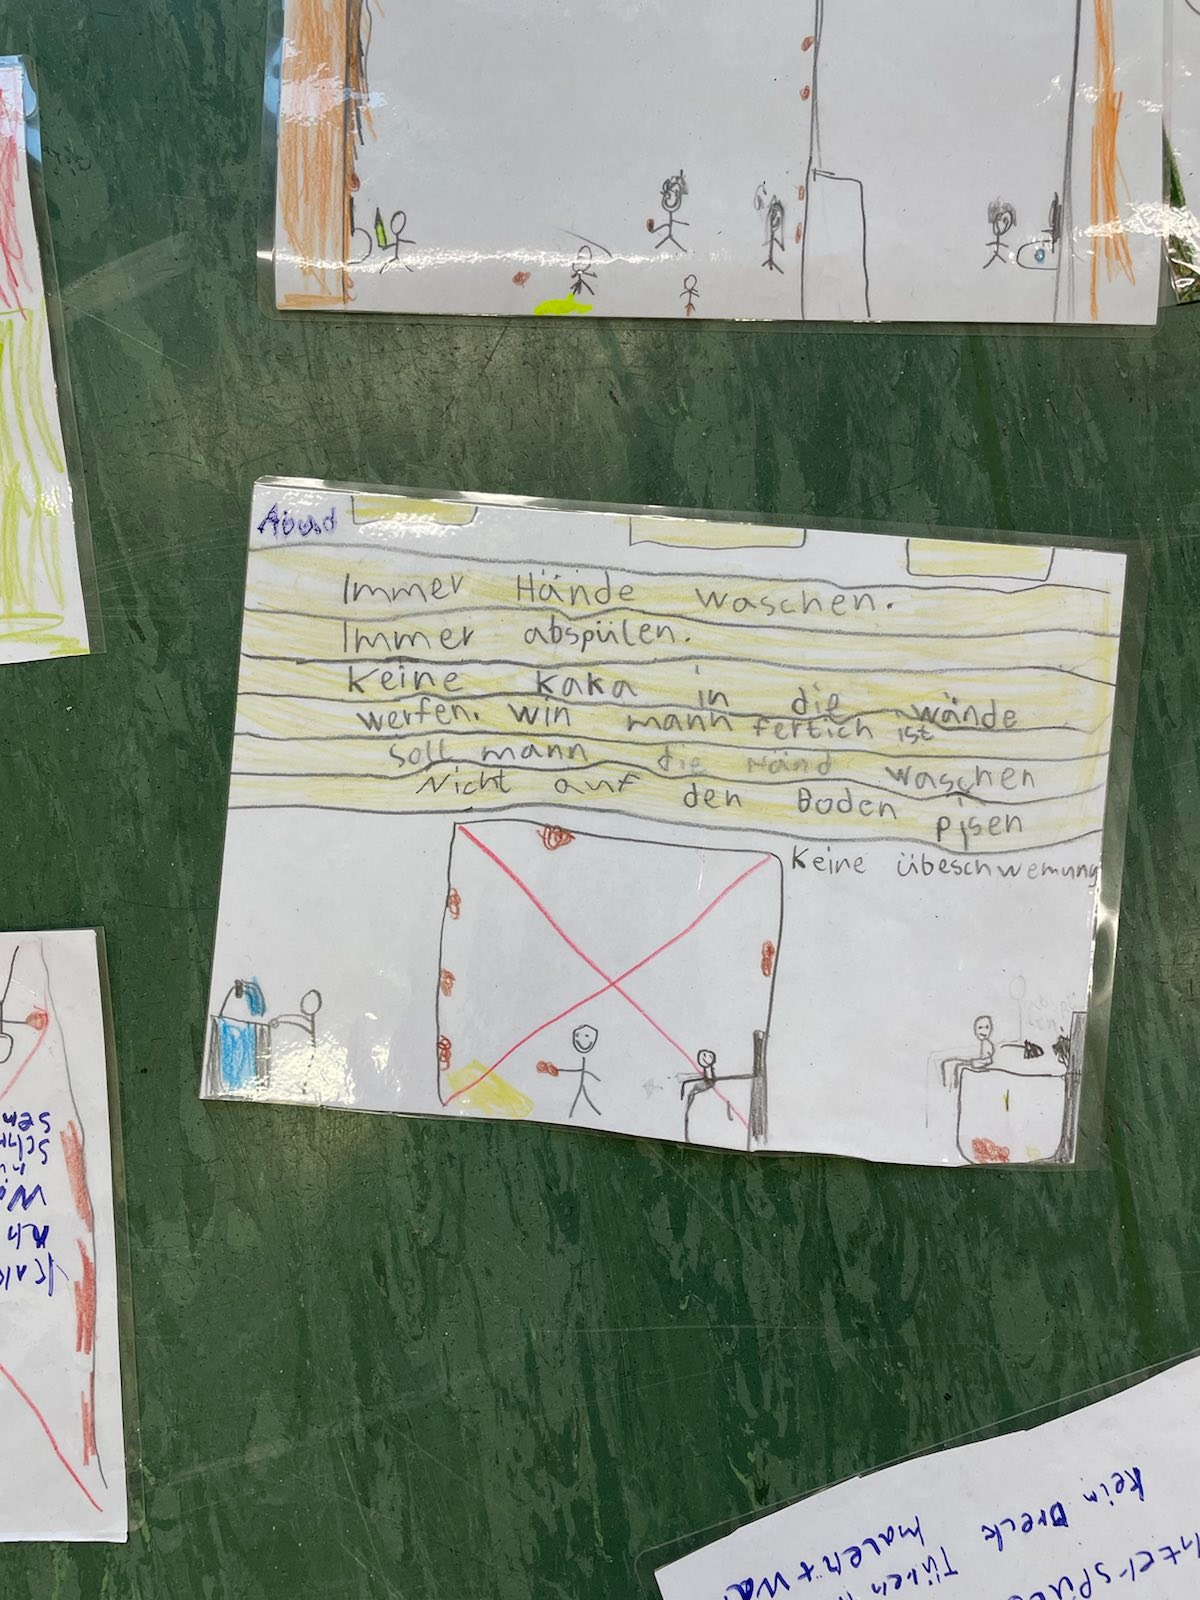 Immer Hände waschen.
Immer abspülen.
Keine kaka in die wände
werfen. win mann fertich ist
soll mann die Händ waschen
Nicht auf den Boden pisen
Keine übeschwemung
kein Dreck
Türen
malen +